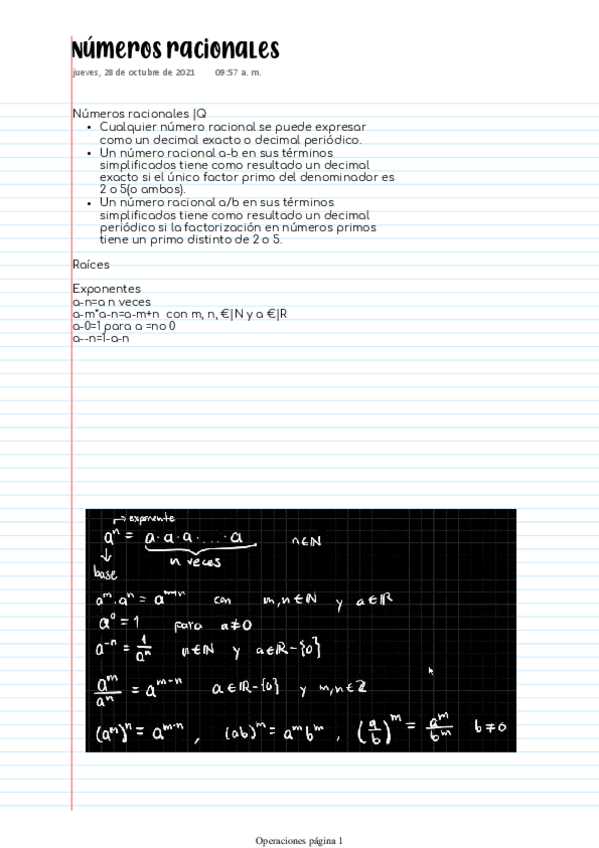 Números racionales
jueves, 28 de octubre de 2021 09:57 a. m.
Números racionales |Q
• Cualquier número racional se puede expresar
como un decimal exacto o decimal periódico.
• Un número racional a-b en sus términos
simplificados tiene como resultado un decimal
exacto si el único factor primo del denominador es
2 o 5(o ambos).
• Un número racional a/b en sus términos
simplificados tiene como resultado un decimal
periódico si la factorización en números primos
tiene un primo distinto de 2 o 5.
Raíces
Exponentes
a-n=a n veces
a-m*a-n=a-m+n con m, n, €|N y a €|R
a-0=1 para a =no 0
a--n=1-a-n
→ exponente
aⁿ = a·a·a·...·a n∈ℕ
↓ n veces
base
aᵐ·aⁿ = aᵐ⁺ⁿ con m,n∈ℕ y a∈ℝ
a⁰=1 para a≠0
a⁻ⁿ = 1/aⁿ n∈ℕ y a∈ℝ-{0}
aᵐ/aⁿ = aᵐ⁻ⁿ a∈ℝ-{0} y m,n∈ℤ
(aᵐ)ⁿ = aᵐ·ⁿ , (ab)ᵐ = aᵐbᵐ , (a/b)ᵐ = aᵐ/bᵐ b≠0
Operaciones página 1